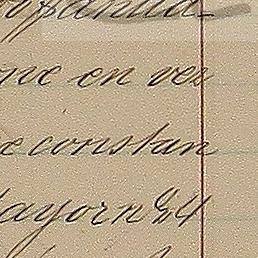 española
ne en vez
e constan
ayor nº 24